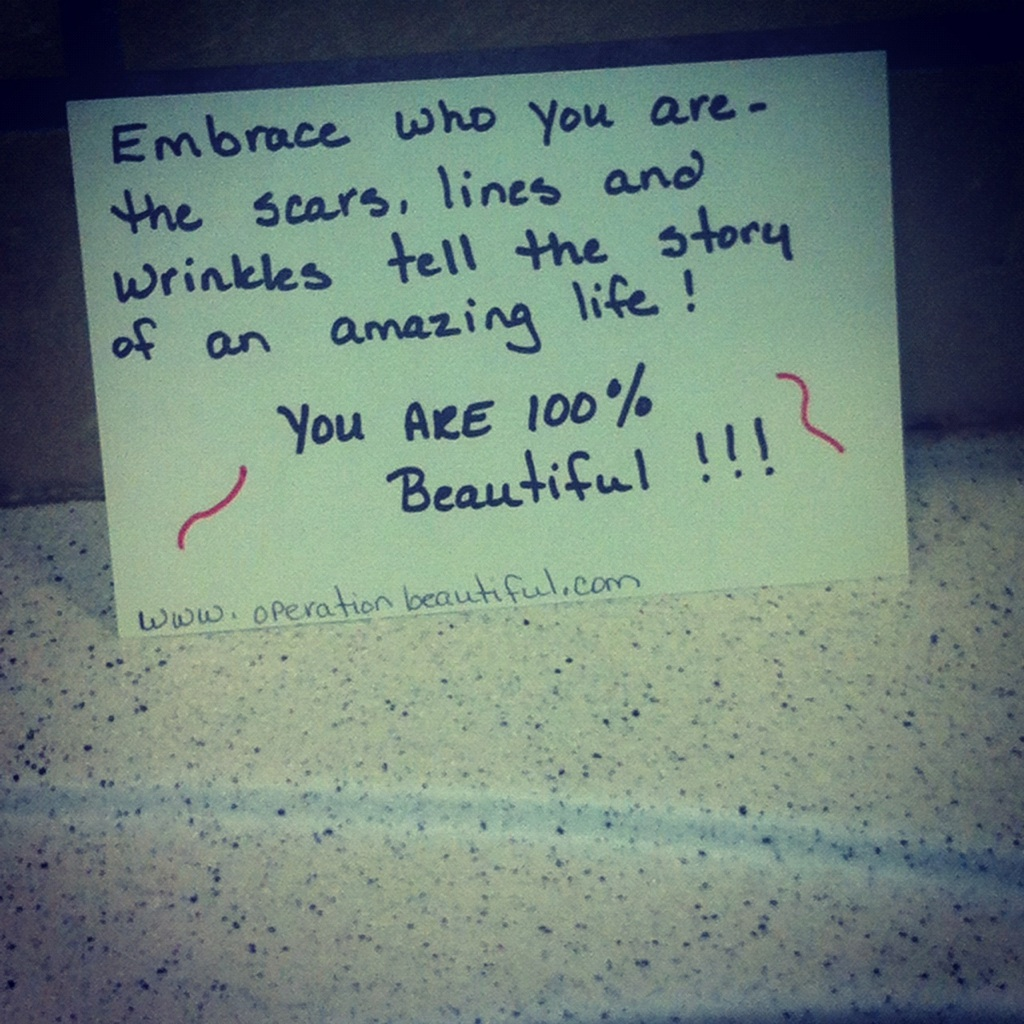 Embrace who you are-
the scars, lines and
wrinkles tell the story
of an amazing life!
You ARE 100%
Beautiful !!!
www.operationbeautiful.com